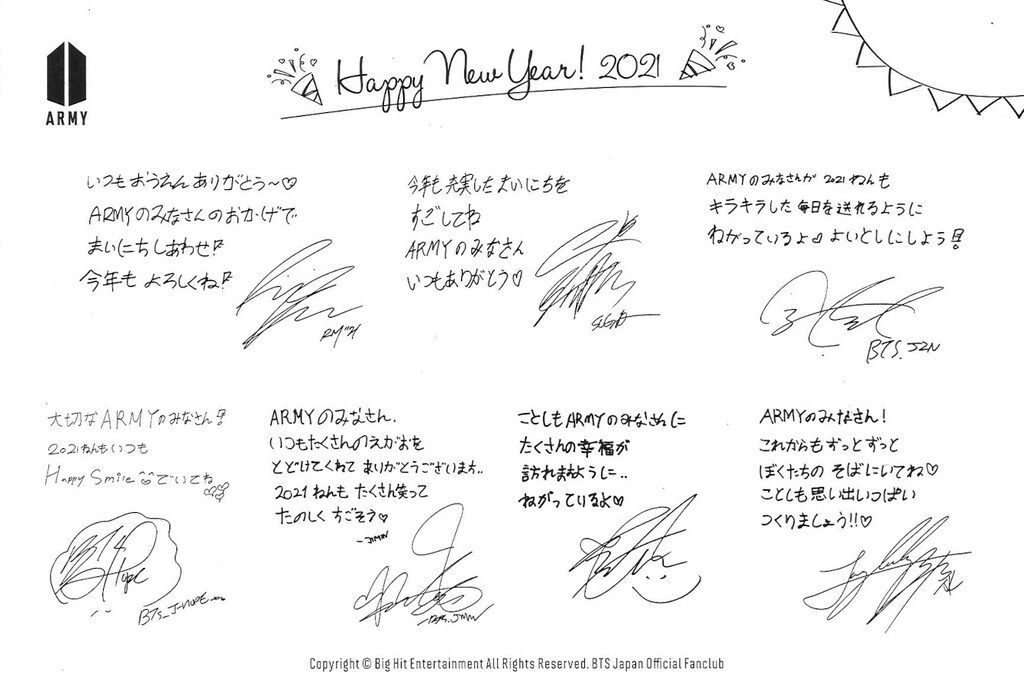 ARMY
Happy New Year! 2021
いつもおうえんありがとう〜♡
ARMYのみなさんのおかげで
まいにちしあわせ!
今年も よろしくね!
RM '21
今年も充実したまいにちを
すごしてね
ARMYのみなさん
いつもありがとう♡
SUGA
ARMYのみなさんが 2021ねんも
キラキラした毎日を送れるように
ねがっているよ♡よいとしにしよう!
BTS.JIN
大切なARMYのみなさん!
2021ねんもいつも
Happy Smile でいてね
BTS_J-HOPE
ARMYのみなさん.
いつもたくさんのえがおを
とどけてくれて ありがとうございます..
2021ねんも たくさん笑って
たのしく すごそう♡
-JIMIN
-BTS.JIMIN
ことしもARMYのみなさんに
たくさんの幸福が
訪れますように..
ねがっているよ♡
ARMYのみなさん!
これからもずっとずっと
ぼくたちの そばにいてね♡
ことしも思い出いっぱい
つくりましょう!!♡
Copyright © Big Hit Entertainment All Rights Reserved. BTS Japan Official Fanclub